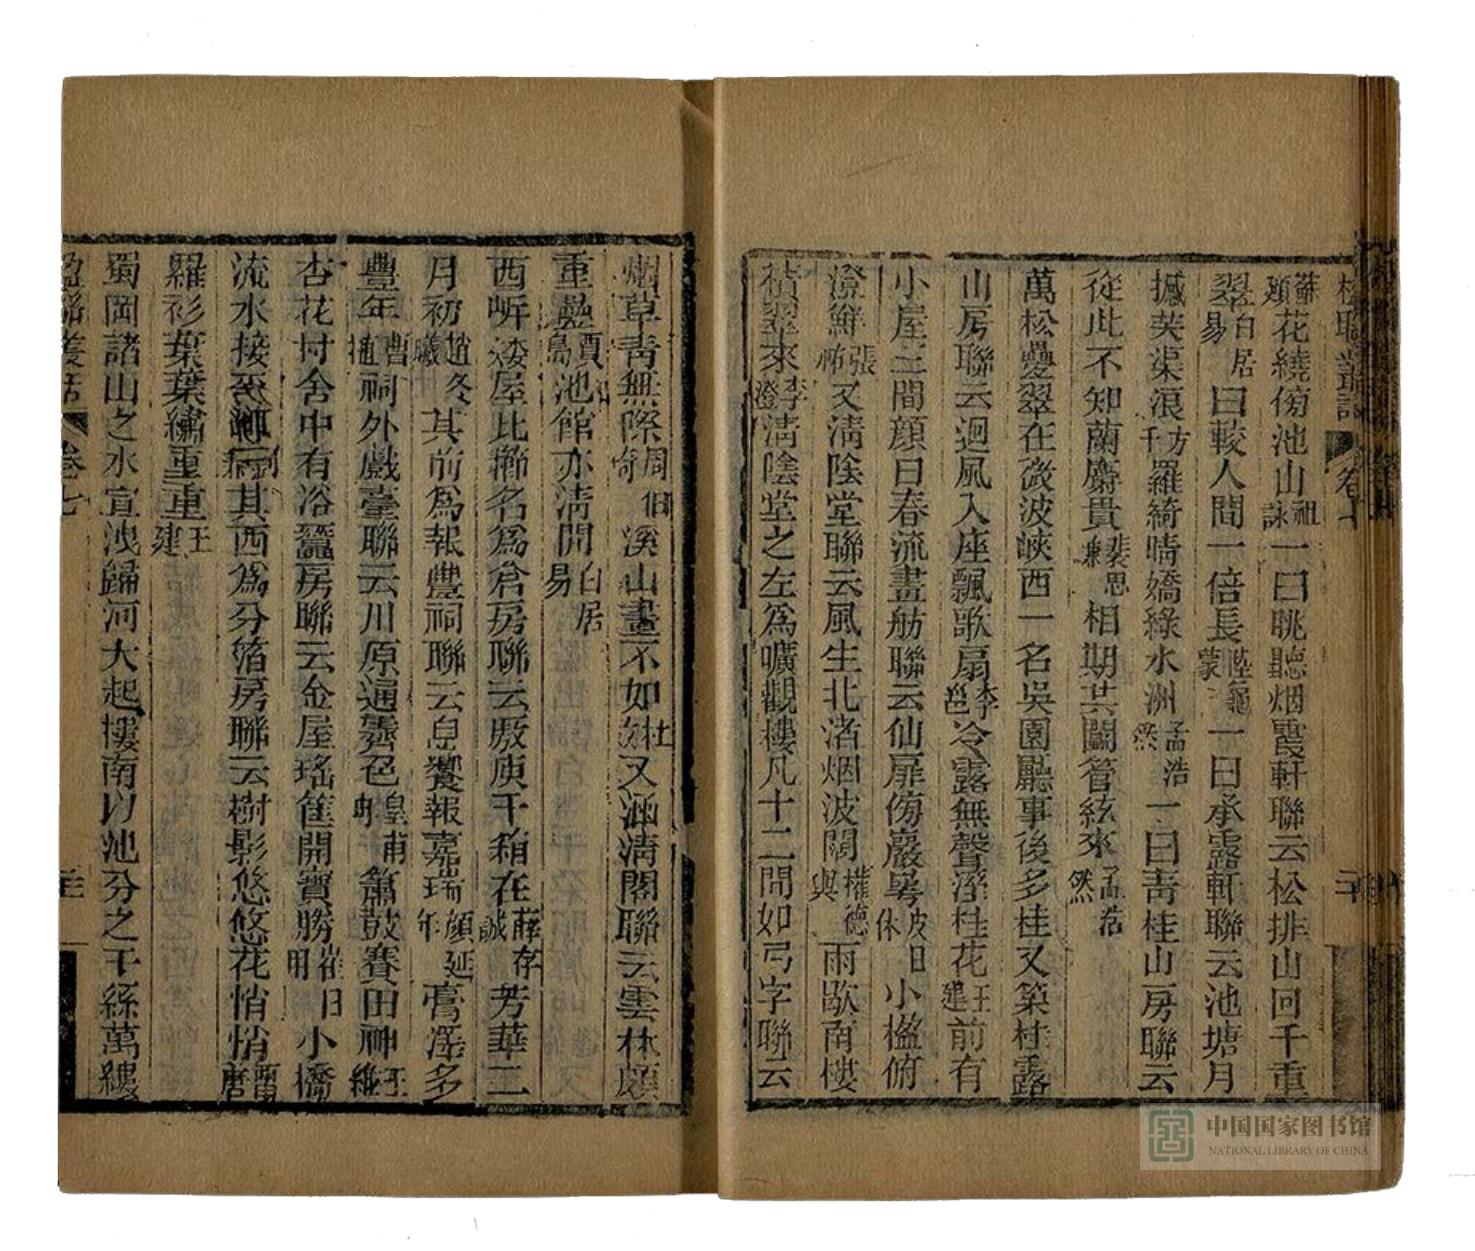 楹聯叢話 卷七 二十
蘇頲花繞傍池山祖詠一曰眺聽烟霞軒聯云松排山回千重
翠白居易曰較人間一倍長陸龜蒙一曰承露軒聯云池塘月
撼芙渠浪方干羅綺晴嬌綠水洲孟浩然一曰青桂山房聯云
從此不知蘭麝貴裴思謙相期共鬭管絃來孟浩然
萬松疊翠在微波峽西一名吳園廳事後多桂又築桂露
山房聯云迴風入座飄歌扇李邕冷露無聲溼桂花王建前有
小屋三間顏曰春流畫舫聯云仙扉傍巖崿皮日休小楹俯
澄鮮張祜又清陰堂聯云風生北渚烟波闊權德輿雨歇南樓
積翠來李澄清陰堂之左為曠觀樓凡十二間如弓字聯云
烟草青無際周伯琦溪山畫不如杜又涵清閣聯云雲林頗
重疊賈島池館亦清閒白居易
西㟁矮屋比櫛名為倉房聯云厫庾千箱在薛存誠芳華二
月初趙冬曦其前為報豐祠聯云息饗報嘉瑞顏延年膏澤多
豐年曹植祠外戲臺聯云川原通霽色皇甫冉簫鼓賽田神王維
杏花村舍中有浴蠶房聯云金屋瑤筐開寶勝崔日用小橋
流水接平其西為分箔房聯云樹影悠悠花悄悄曹唐
羅衫葉葉繡重重王建
蜀岡諸山之水宣洩歸河大起樓南以池分之千絲萬縷
楹聯叢話 卷七 三
中国国家图书馆
NATIONAL LIBRARY OF CHINA